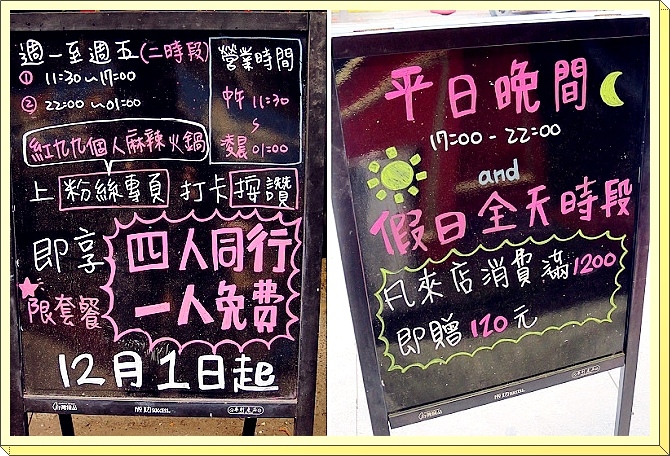 週一至週五(二時段)
① 11:30~17:00
② 22:00~01:00
營業時間
中午 11:30
~
凌晨 01:00
紅九九個人麻辣火鍋
上 粉絲專頁 打卡 按讚
即享 四人同行
一人免費
限套餐
12月1日起
平日晚間
17:00-22:00
and
假日全天時段
凡來店消費滿1200
即贈 120元